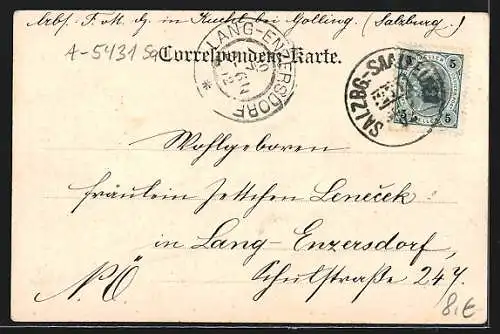 Arbf. F. M. G. in Kuchl bei Golling. (Salzburg.)
A-5431 Sa
Correspondenz-Karte.
LANG-ENZERSDORF
SALZBG.-SAALFELDEN
5 5
Wohlgeboren
Fräulein Jettchen Leneček
in Lang-Enzersdorf,
N.Ö Schulstraße 247.
8,€